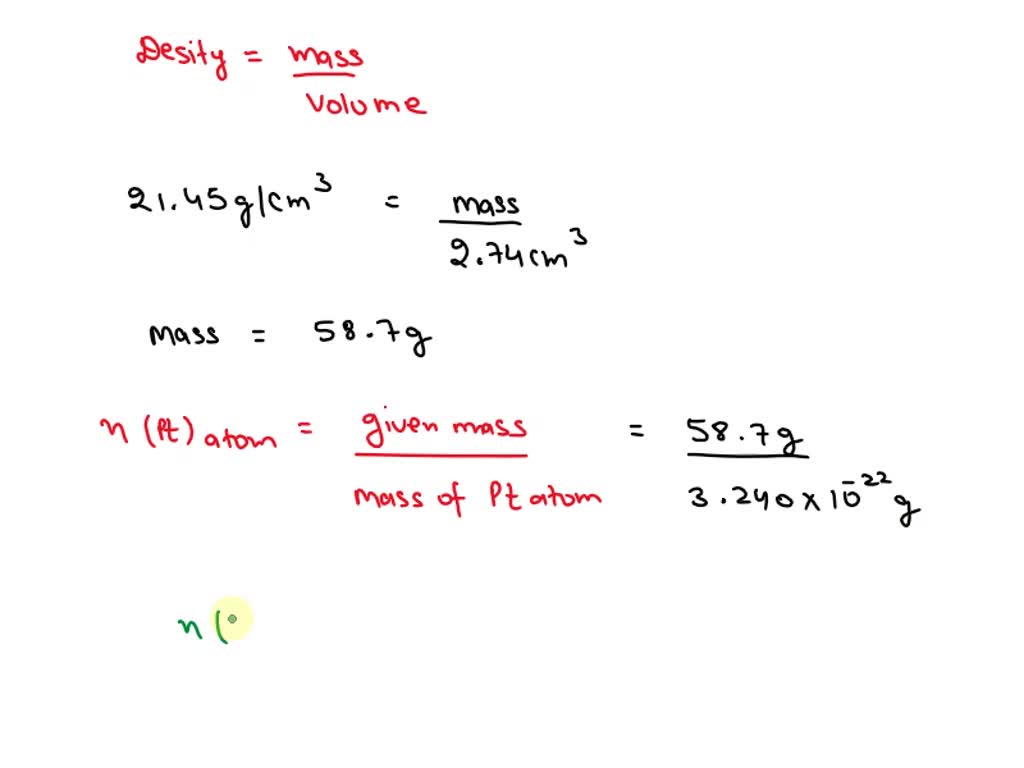 Desity = mass
volume
21.45 g/cm³ = mass
2.74 cm³
mass = 58.7 g
n (Pt) atom = given mass = 58.7 g
mass of Pt atom 3.240 × 10⁻²² g
n (